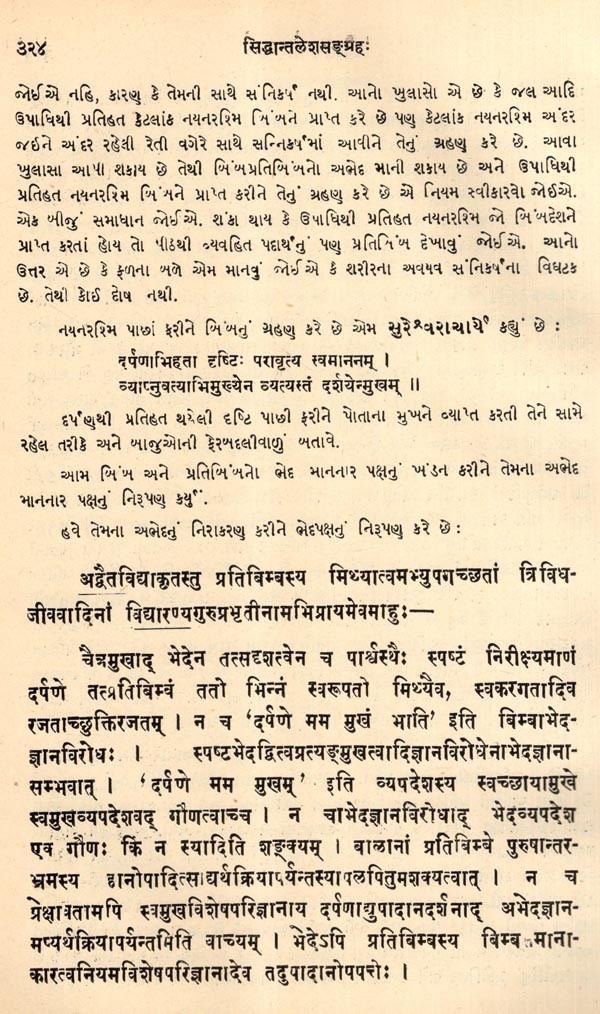 ૩૨૪ सिद्धान्तलेशसङ्ग्रहः
જોઈએ નહિ, કારણ કે તેમની સાથે સંનિકર્ષ નથી. આનો ખુલાસો એ છે કે જલ આદિ
ઉપાધિથી પ્રતિહત કેટલાંક નયનરશ્મિ બિંબને પ્રાપ્ત કરે છે પણ કેટલાંક નયનરશ્મિ અંદર
જઈને અંદર રહેલી રેતી વગેરે સાથે સન્નિકર્ષમાં આવીને તેનું ગ્રહણ કરે છે. આવા
ખુલાસા આપી શકાય છે તેથી બિંબપ્રતિબિંબનો અભેદ માની શકાય છે અને ઉપાધિથી
પ્રતિહત નયનરશ્મિ બિંબને પ્રાપ્ત કરીને તેનું ગ્રહણ કરે છે એ નિયમ સ્વીકારવો જોઈએ.
એક બીજું સમાધાન જોઈએ. શંકા થાય કે ઉપાધિથી પ્રતિહત નયનરશ્મિ જો બિંબદેશને
પ્રાપ્ત કરતાં હોય તો પીઠથી વ્યવહિત પદાર્થનું પણ પ્રતિબિંબ દેખાવું જોઈએ. આનો
ઉત્તર એ છે કે ફળના બળે એમ માનવું જોઈએ કે શરીરના અવયવ સંનિકર્ષના વિઘટક
છે. તેથી કોઈ દોષ નથી.
નયનરશ્મિ પાછાં ફરીને બિંબનું ગ્રહણ કરે છે એમ સુરેશ્વરાચાર્યે કહ્યું છે :
दर्पणाभिहता दृष्टिः परावृत्य स्वमाननम् ।
व्याप्नुवत्याभिमुख्येन व्यत्यस्तं दर्शयेन्मुखम् ॥
દર્પણથી પ્રતિહત થયેલી દૃષ્ટિ પાછી ફરીને પોતાના મુખને વ્યાપ્ત કરતી તેને સામે
રહેલ તરીકે અને બાજુઓની ફેરબદલીવાળું બતાવે.
આમ બિંબ અને પ્રતિબિંબનો ભેદ માનનાર પક્ષનું ખંડન કરીને તેમના અભેદ
માનનાર પક્ષનું નિરૂપણ કર્યું.
હવે તેમના અભેદનું નિરાકરણ કરીને ભેદપક્ષનું નિરૂપણ કરે છે :
अद्वैतविद्याकृतस्तु प्रतिबिम्बस्य मिथ्यात्वमभ्युपगच्छतां त्रिविध-
जीववादिनां विद्यारण्यगुरुप्रभृतीनामभिप्रायमेवमाहुः—
चैत्रमुखाद् भेदेन तत्सदृशत्वेन च पार्श्वस्थैः स्पष्टं निरीक्ष्यमाणं
दर्पणे तत्प्रतिबिम्बं ततो भिन्नं स्वरूपतो मिथ्यैव, स्वकरगतादिव
रजताच्छुक्तिरजतम् । न च ‘दर्पणे मम मुखं भाति’ इति बिम्बाभेद-
ज्ञानविरोधः । स्पष्टभेदद्वित्वप्रत्यङ्मुखत्वादिज्ञानविरोधेनाभेदज्ञाना-
सम्भवात् । ‘दर्पणे मम मुखम्’ इति व्यपदेशस्य स्वच्छायामुखे
स्वमुखव्यपदेशवद् गौणत्वाच्च । न चाभेदज्ञानविरोधाद् भेदव्यपदेश
एव गौणः किं न स्यादिति शङ्क्यम् । बालानां प्रतिबिम्बे पुरुषान्तर-
भ्रमस्य हानोपादित्साद्यर्थक्रियापर्यन्तस्यापलपितुमशक्यत्वात् । न च
प्रेक्षावतामपि स्वमुखविशेषपरिज्ञानाय दर्पणाद्युपादानदर्शनाद् अभेदज्ञान-
मप्यर्थक्रियापर्यन्तमिति वाच्यम् । भेदेऽपि प्रतिबिम्बस्य बिम्बसमाना-
कारत्वनियमविशेषपरिज्ञानादेव तदुपादानोपपत्तेः ।